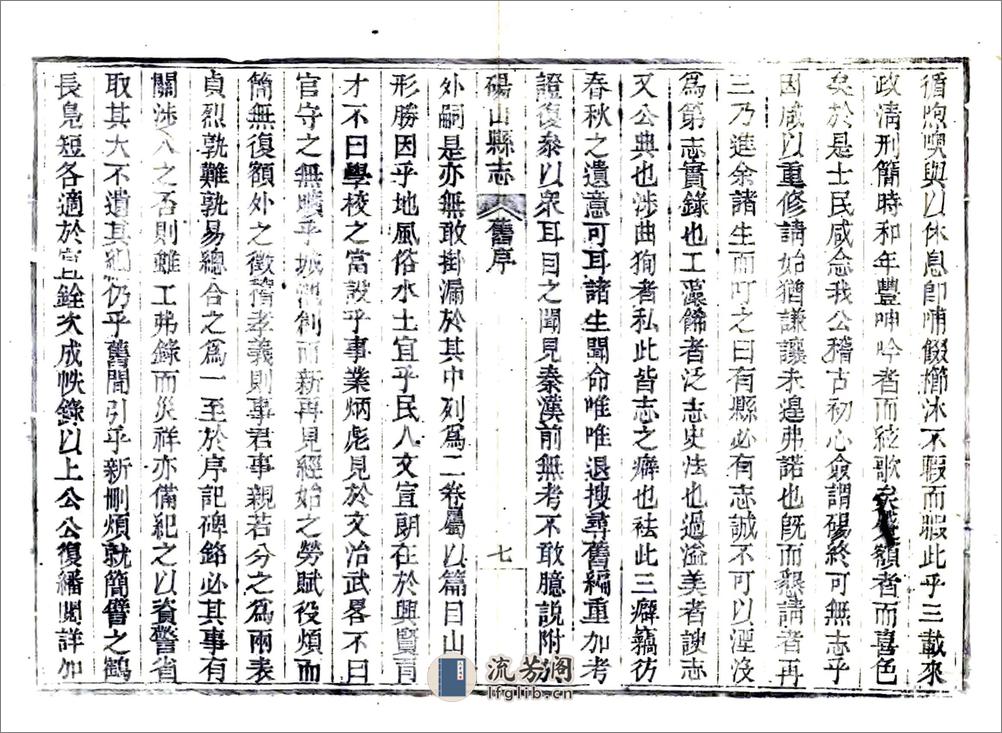 循煦噢與以休息即哺餟擳沐不暇而暇此乎三載來
政清刑簡時和年豐呻吟者而絃歌矣蹙額者而喜色
矣於是士民咸念我公稽古初心僉謂碭終可無志乎
因咸以重修請始猶謙讓未遑弗諾也既而懇請者再
三乃進余諸生而叮之曰有縣必有志誠不可以湮沒
爲第志實錄也工藻餙者泛志史法也過溢美者諛志
又公典也涉曲狥者私此皆志之癖也袪此三癖竊彷
春秋之遺意可耳諸生聞命唯唯退搜尋舊編重加考
證復叅以衆耳目之聞見秦漢前無考不敢臆說附
碭山縣志 舊序 七
外嗣是亦無敢掛漏於其中列爲二卷屬以篇目山
形勝因乎地風俗水土宜乎民人文宣朗在於興賢育
才不曰學校之當設乎事業炳彪見於文治武畧不曰
官守之無曠乎城池創而新再見經始之勞賦役煩而
簡無復額外之徵稽孝義則事君事親若分之爲兩表
貞烈孰難孰易總合之爲一至於序記碑銘必其事有
關涉八之否則雖工弗錄而災祥亦備紀之以資警省
取其大不遺其細仍乎舊聞引乎新刪煩就簡譬之鶴
長鳧短各適於宜銓次成帙錄以上公公復繙閱詳加
流芳阁
lfglib.cn